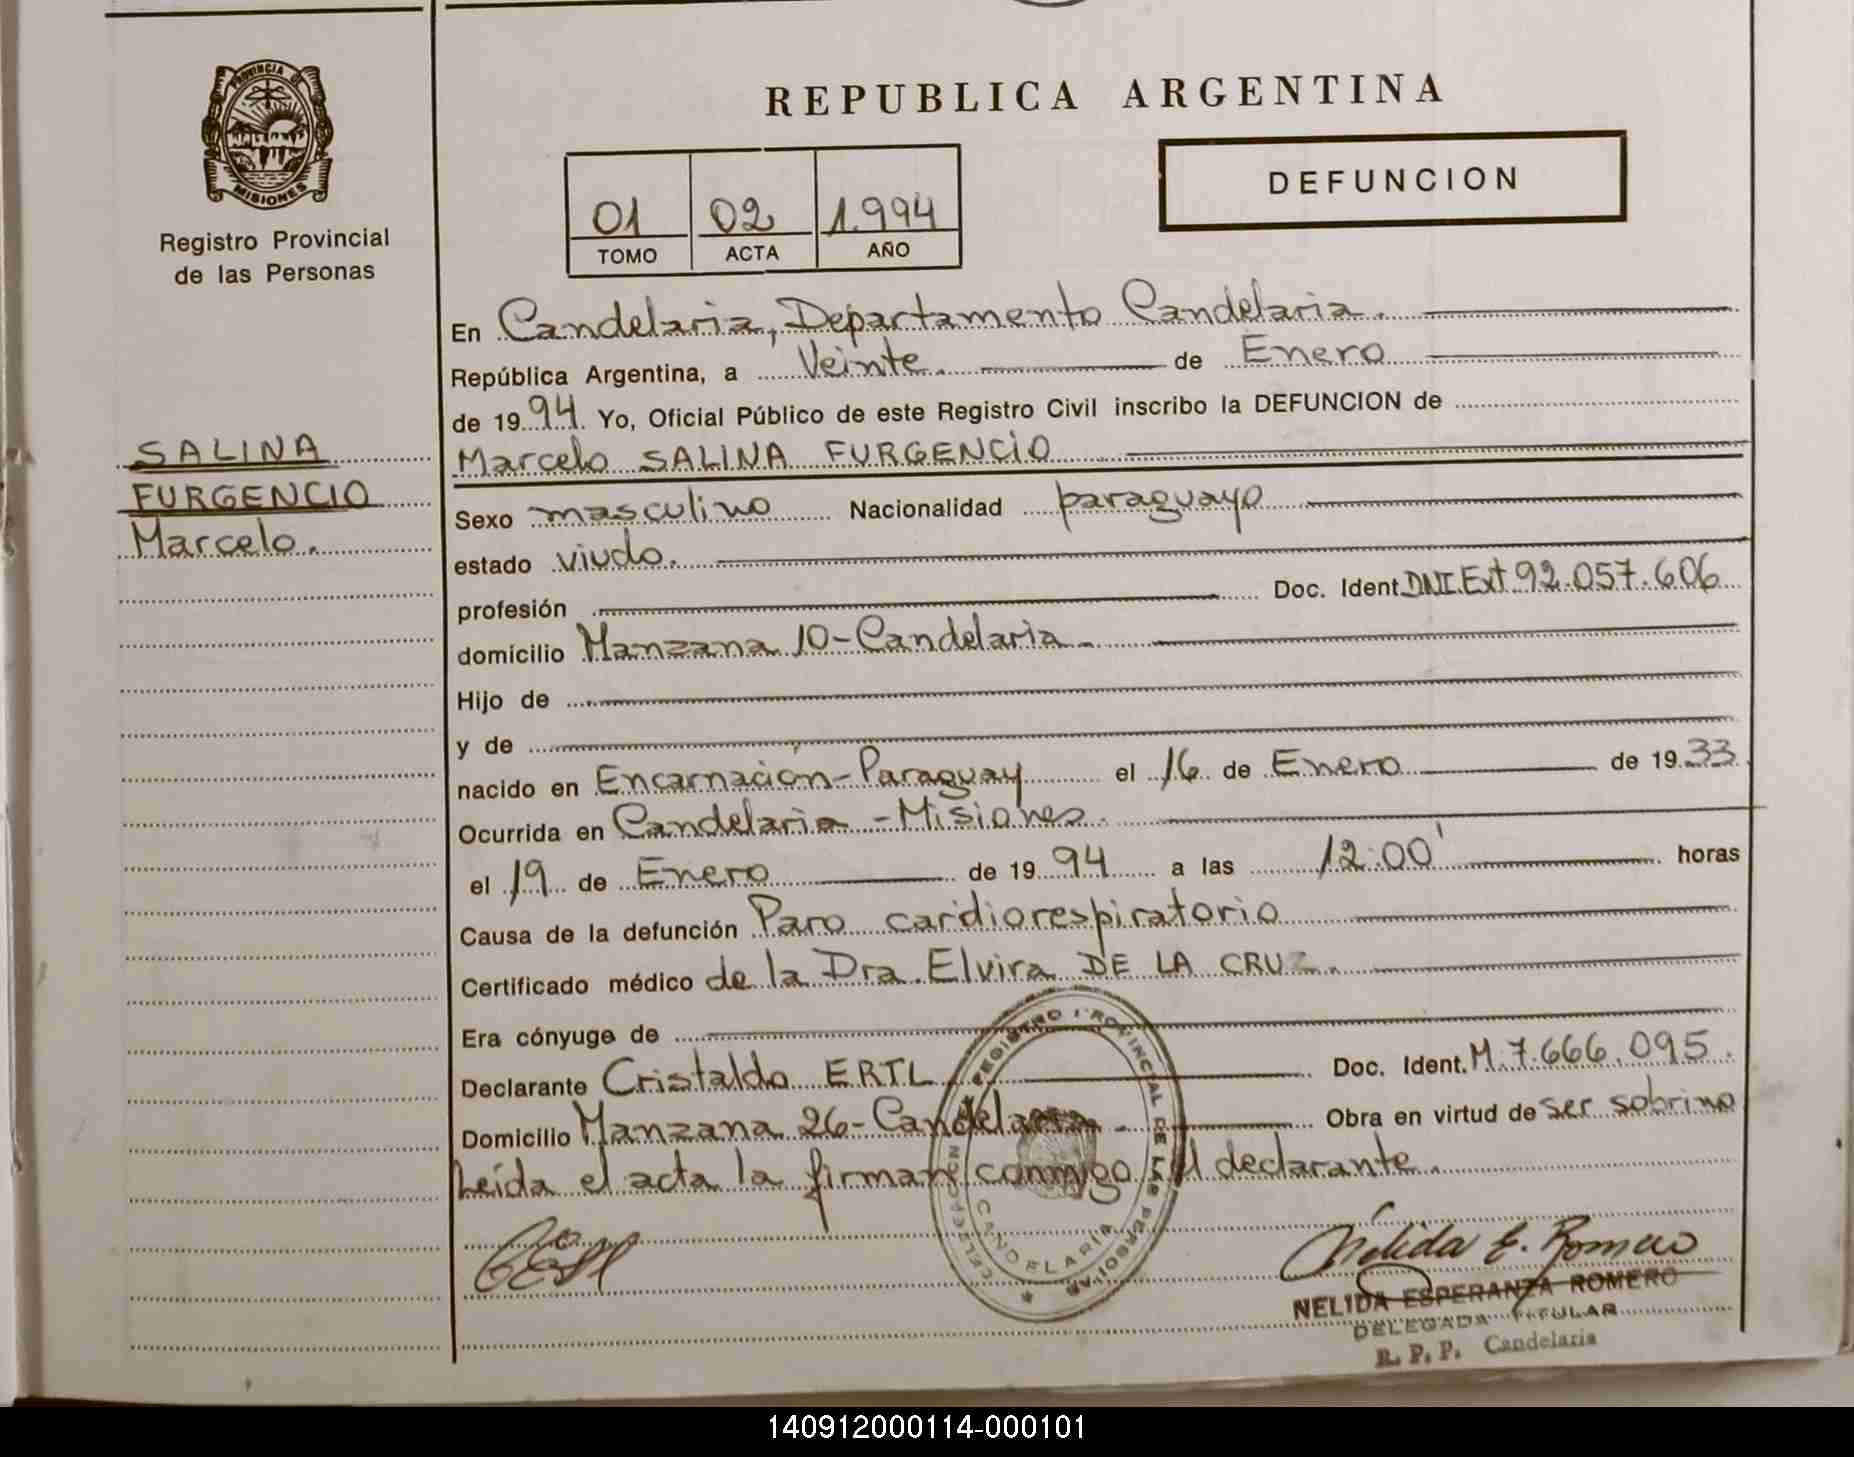 REPUBLICA ARGENTINA
PROVINCIA DE
MISIONES
Registro Provincial
de las Personas
01 02 1.994
TOMO ACTA AÑO
DEFUNCION
SALINA
FURGENCIO
Marcelo.
En Candelaria, Departamento Candelaria.
República Argentina, a Veinte. de Enero
de 1994. Yo, Oficial Público de este Registro Civil inscribo la DEFUNCION de
Marcelo SALINA FURGENCIO
Sexo masculino Nacionalidad paraguayo
estado viudo.
profesión Doc. Ident. DNI.Ext 92.057.606
domicilio Manzana 10-Candelaria-
Hijo de
y de
nacido en Encarnación-Paraguay el 16 de Enero de 1933
Ocurrida en Candelaria-Misiones.
el 19 de Enero de 1994 a las 12:00' horas
Causa de la defunción Paro cardiorespiratorio
Certificado médico de la Dra. Elvira DE LA CRUZ.
Era cónyuge de
Declarante Cristaldo ERTL Doc. Ident. M.7.666.095.
Domicilio Manzana 26-Candelaria- Obra en virtud de ser sobrino
Leída el acta la firman conmigo el declarante.
REGISTRO PROVINCIAL DE LAS PERSONAS
DELEGACION
CANDELARIA
Nélida E. Romero
NELIDA ESPERANZA ROMERO
DELEGADA TITULAR
R. P. P. Candelaria
140912000114-000101